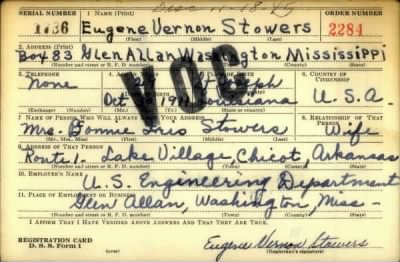 Disc 11-18-45
SERIAL NUMBER 1. NAME (Print) ORDER NUMBER
1736 Eugene Vernon Stowers 2284
(First) (Middle) (Last)
2. ADDRESS (Print)
Box 83 Glen Allan Washington Mississippi
(Number and street or R. F. D. number) (Town) (County) (State)
3. TELEPHONE 6. COUNTRY OF CITIZENSHIP
None
Oct. Louisiana U.S.A.
(Exchange) (Number) (Mo.) (Day) (Yr.)
VOC
7. NAME OF PERSON WHO WILL ALWAYS YOUR ADDRESS 8. RELATIONSHIP OF THAT PERSON
Mrs. Bonnie Iris Stowers Wife
(Mr., Mrs., Miss) (First) (Middle) (Last)
9. ADDRESS OF THAT PERSON
Route 1- Lake Village, Chicot, Arkansas
(Number and street or R. F. D. number) (Town) (County) (State)
10. EMPLOYER'S NAME
U.S. Engineering Department
11. PLACE OF EMPLOYMENT OR BUSINESS
Glen Allan, Washington, Miss-
(Number and street or R. F. D. number) (Town) (County) (State)
I AFFIRM THAT I HAVE VERIFIED ABOVE ANSWERS AND THAT THEY ARE TRUE.
REGISTRATION CARD
D. S. S. Form 1 (over) Eugene Vernon Stowers
(Registrant's signature)